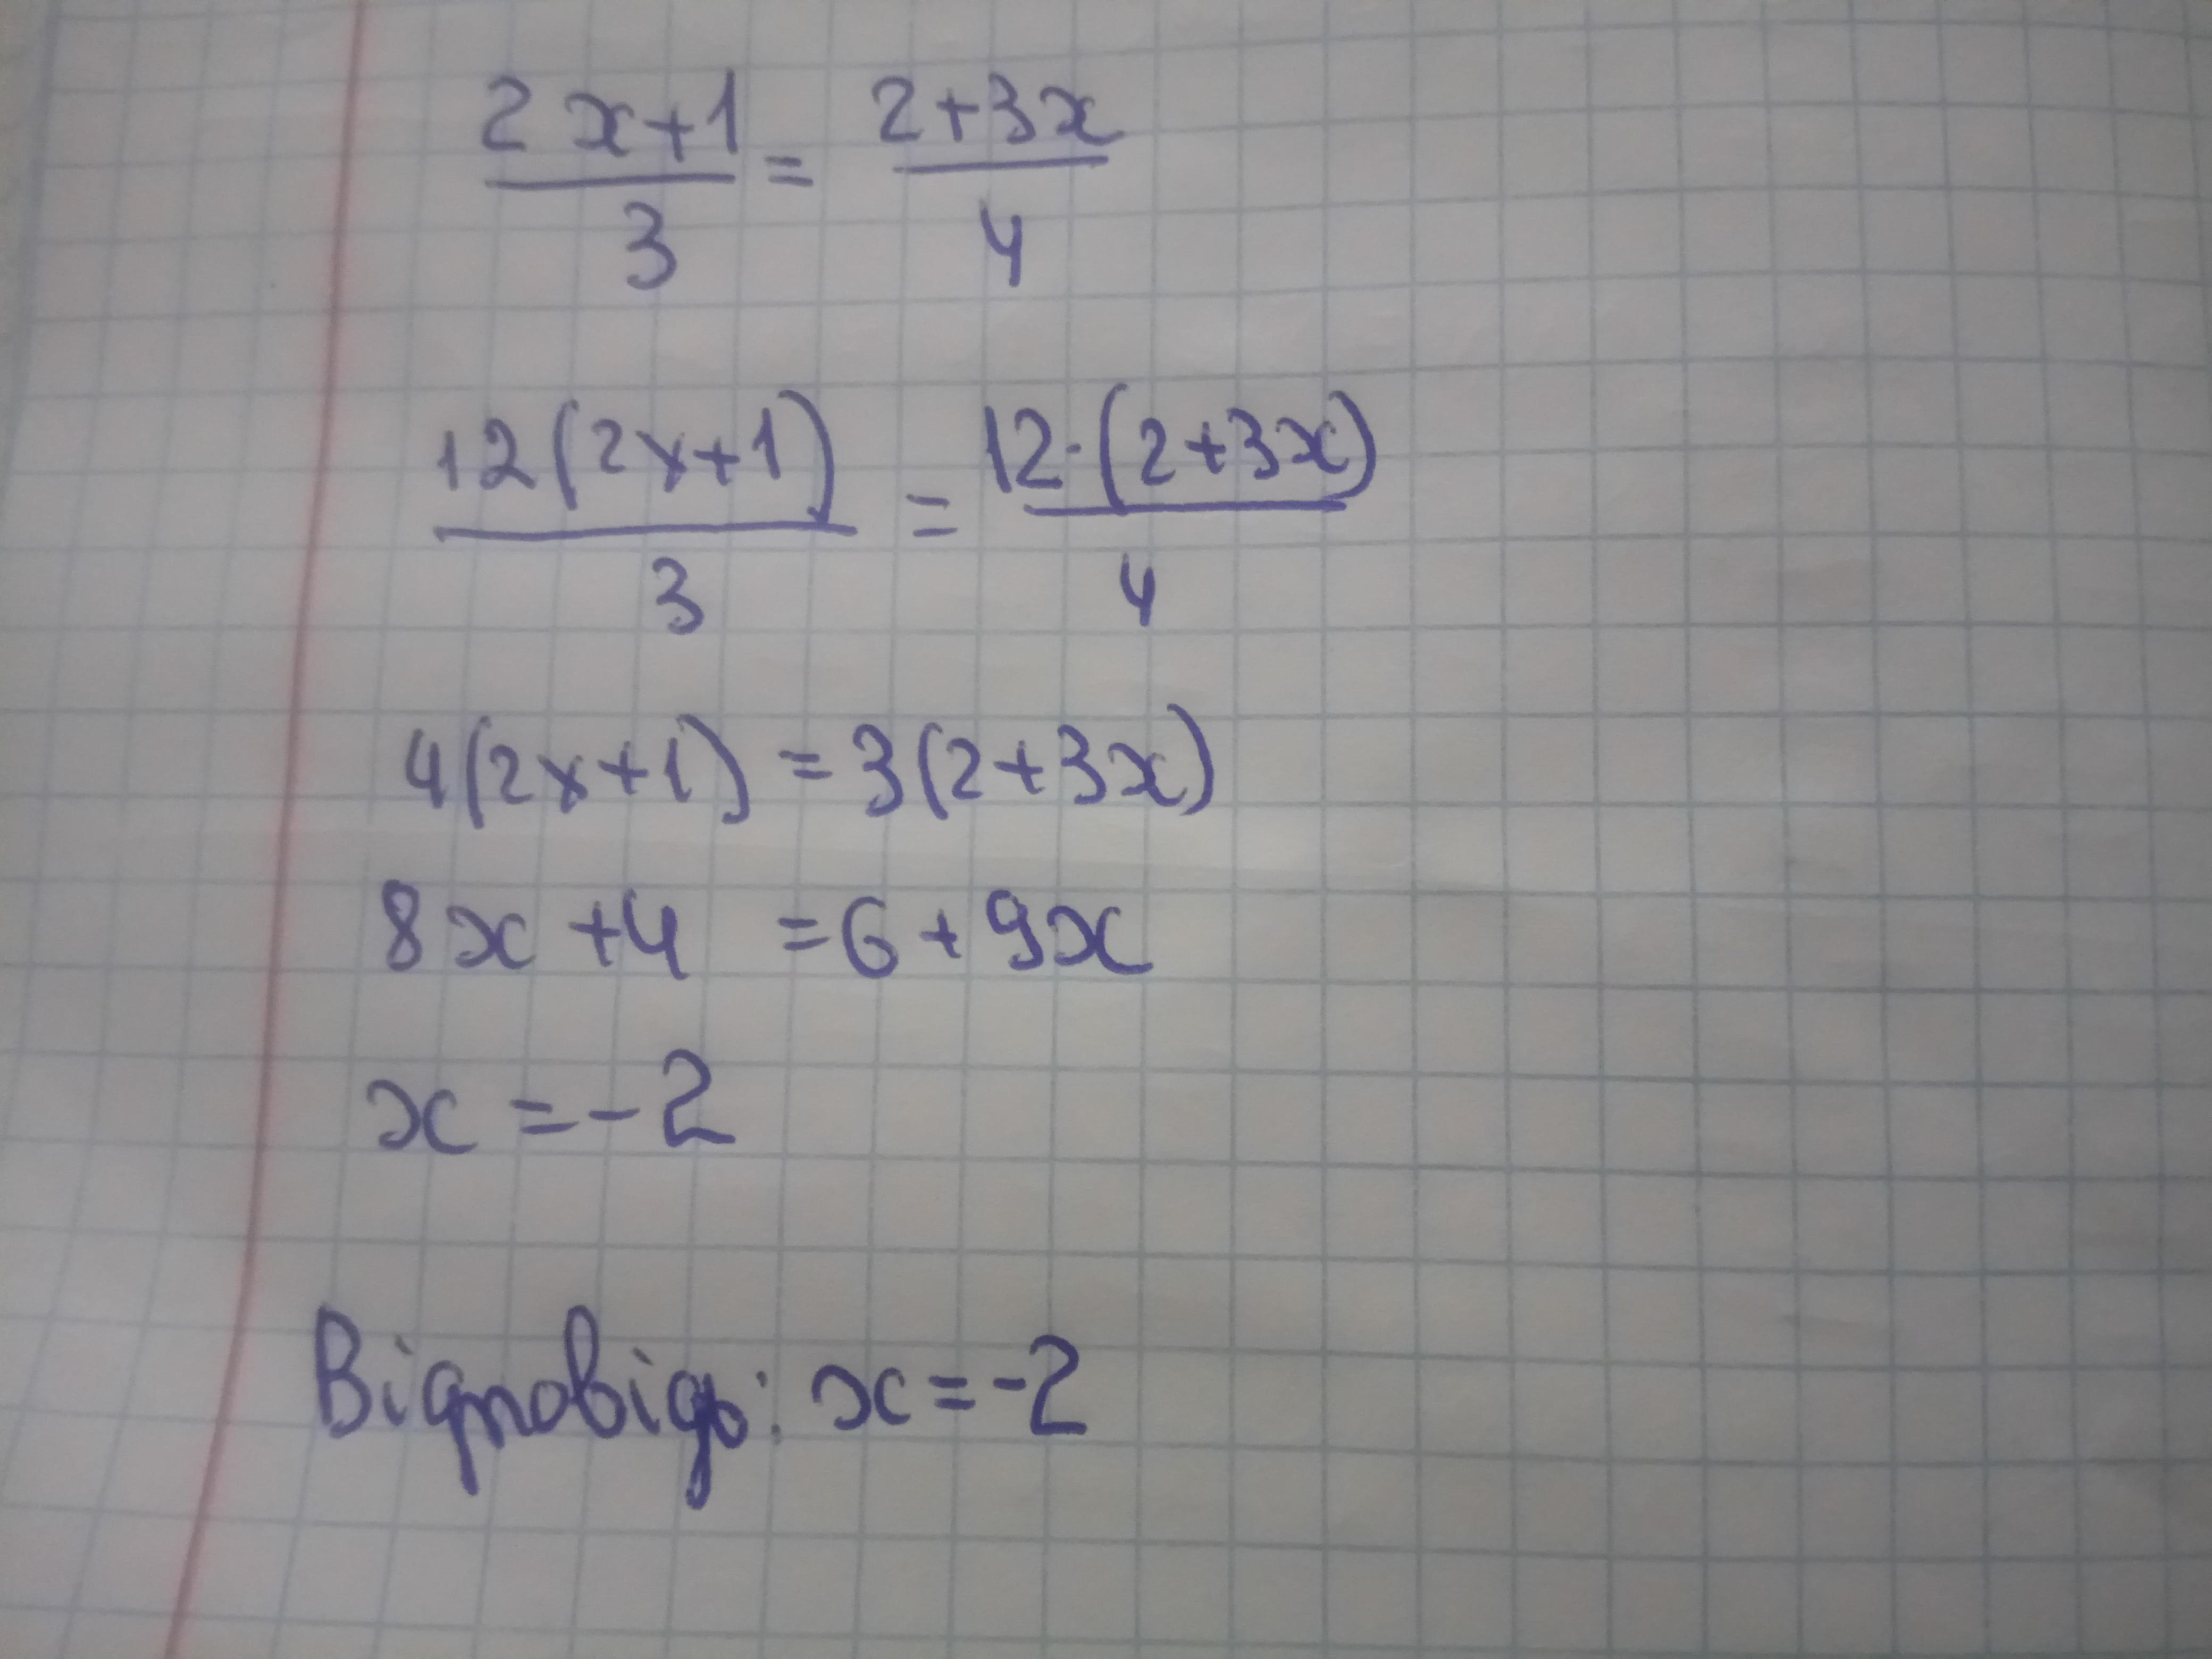 (2x+1)/3 = (2+3x)/4
12(2x+1)/3 = 12·(2+3x)/4
4(2x+1) = 3(2+3x)
8x+4 = 6+9x
x = -2
Відповідь: x = -2